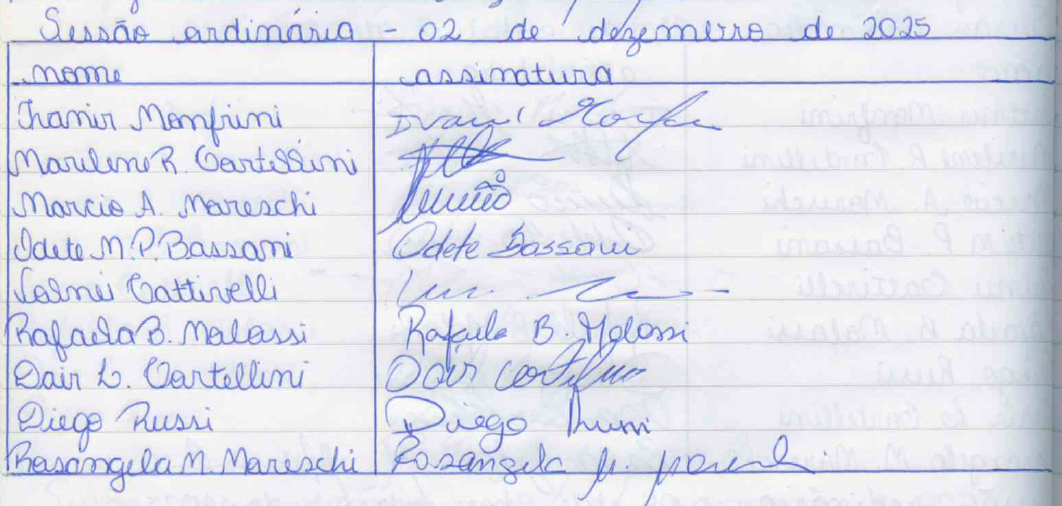 Sessão ordinária - 02 de dezembro de 2025
nome assinatura
Ivanir Monfrini
Marilene R. Cartellini
Marcio A. Mareschi
Odete M.P. Bassani Odete Bassani
Valmei Cattinelli
Rafaela B. Malossi Rafaela B. Malossi
Dair L. Cartellini Dair
Diego Russi Diego Russi
Rosangela M. Mareschi Rosangela M.